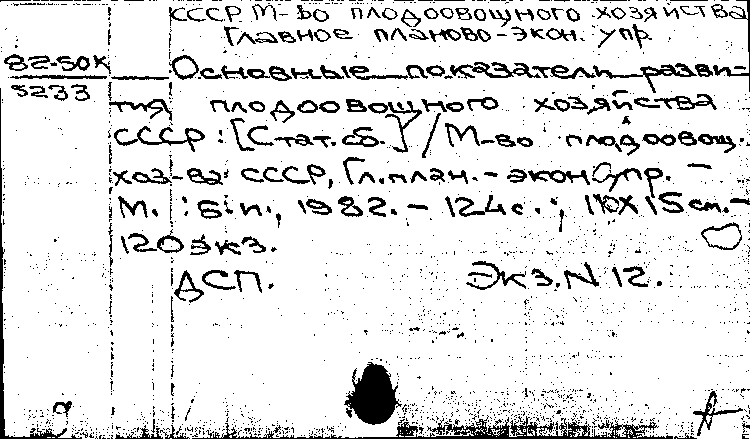 СССР М-во плодоовощного хозяйства
Главное планово-экон. упр.
82-50к
5233
Основные показатели разви-
тия плодоовощного хозяйства
СССР: [Стат. сб.] / М-во плодоовощ.
хоз-ва СССР, Гл. план.-экон упр. –
М. : Б.и., 1982. – 124 с.; 110х15 см. –
120 экз.
ДСП. Экз. N 12.